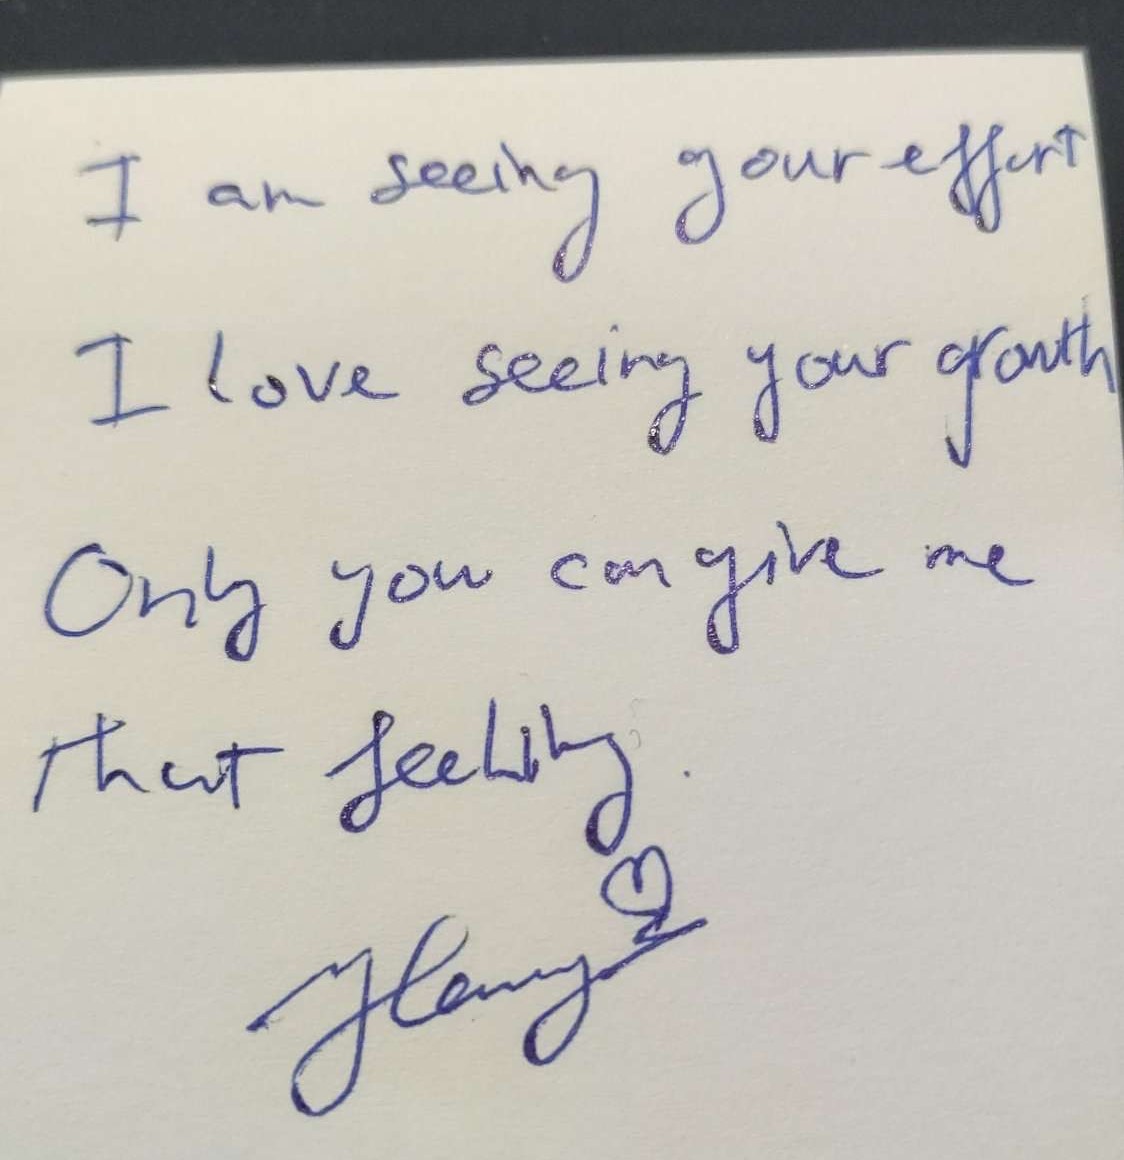 I am seeing your effort
I love seeing your growth
Only you can give me
that feeling.